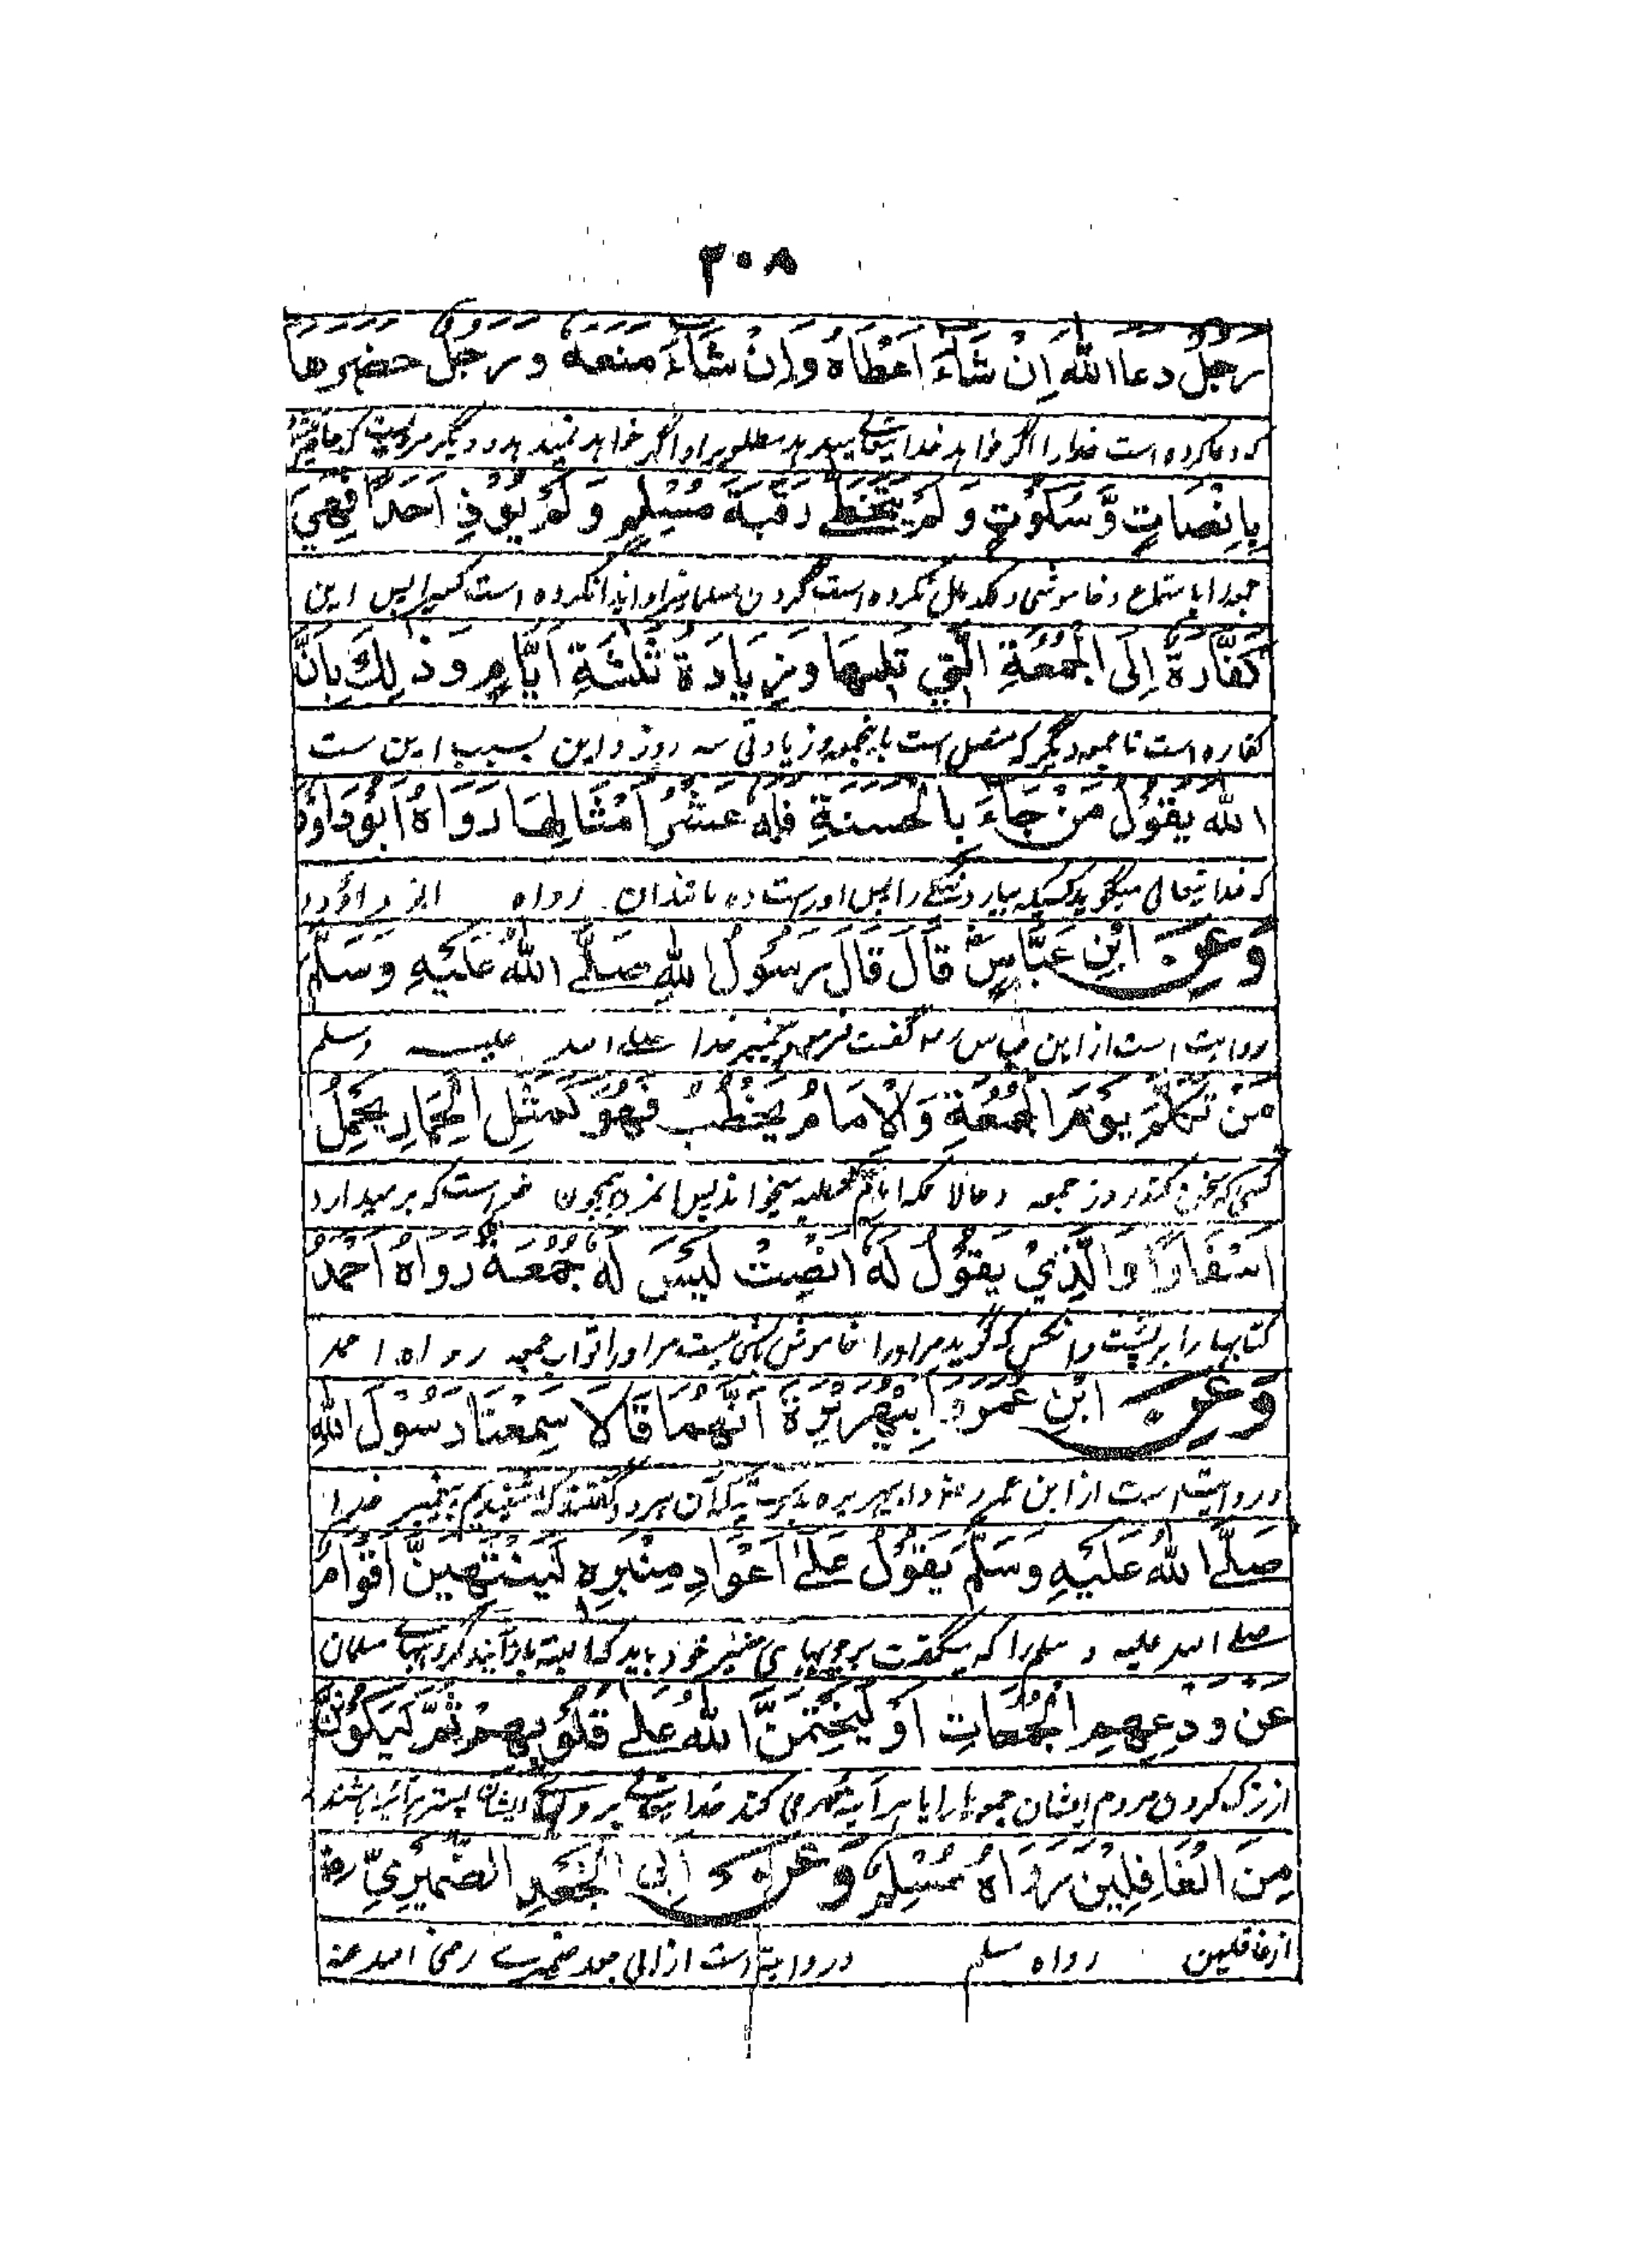 ٢٠٨
رَجُلٌ دَعَا اللهَ اِنْ شَآءَ اَعْطَاهُ وَاِنْ شَآءَ مَنَعَهٗ وَرَجُلٌ حَضَرَهَا
که دعا کرده است خدا را اگر خواهد خدا یتعالے بدهد مطلوب او را و اگر خواهد ندهد و دیگر مردیست که حاضر شد
بِاِنْصَاتٍ وَّسُكُوْتٍ وَلَمْ يَتَخَطَّ رَقَبَةَ مُسْلِمٍ وَلَمْ يُؤْذِ اَحَدًا فَهِيَ
جمعه را باستماع و خاموشی و نکرده است گردن مسلمانرا و ایذا نکرده است کسیرا پس این
كَفَّارَةٌ اِلَى الْجُمُعَةِ الَّتِيْ تَلِيْهَا وَزِيَادَةُ ثَلٰثَةِ اَيَّامٍ وَذٰلِكَ بِاَنَّ
کفاره است تا جمعه دیگر که متصل است باینجمعه و زیادتی سه روز و این بسبب این ست
اللهَ يَقُوْلُ مَنْ جَآءَ بِالْحَسَنَةِ فَلَهٗ عَشْرُ اَمْثَالِهَا رَوَاهُ اَبُوْدَاوٗدَ
که خدا یتعالی میگوید کسیکه بیارد نیکی را پس او راست ده مانندان رواه ابو داؤد
وَعَنِ ابْنِ عَبَّاسٍ رض قَالَ قَالَ رَسُوْلُ اللهِ صَلَّے اللهُ عَلَيْهِ وَسَلَّمَ
روایت است از ابن عباس رض گفت فرمود پیغمبر خدا صلے الله علیه وسلم
مَنْ تَكَلَّمَ يَوْمَ الْجُمُعَةِ وَالْاِمَامُ يَخْطُبُ فَهُوَ كَمَثَلِ الْحِمَارِ يَحْمِلُ
کسی که سخن کند روز جمعه و حالانکه امام خطبه میخواند پس او همچون خر است که بر میدارد
اَسْفَارًا وَالَّذِيْ يَقُوْلُ لَهٗ اَنْصِتْ لَيْسَ لَهٗ جُمُعَةٌ رَوَاهُ اَحْمَدُ
کتابها را بر پشت و آنکس که گوید مر او را خاموش باش نیست مر او را ثواب جمعه رواه احمد
وَعَنِ ابْنِ عُمَرَ وَ اَبِيْ هُرَيْرَةَ اَنَّهُمَا قَالَا سَمِعْنَا رَسُوْلَ اللهِ
و روایت است از ابن عمر و ابی هریره که آن هر دو گفتند که شنیدیم پیغمبر خدا
صَلَّے اللهُ عَلَيْهِ وَسَلَّمَ يَقُوْلُ عَلٰى اَعْوَادِ مِنْبَرِهٖ لَيَنْتَهِيَنَّ اَقْوَامٌ
صلے الله علیه و سلم را که میگفت بر چوبهای منبر خود باید که البته باز آیند گروههاے مسلمان
عَنْ وَدْعِهِمُ الْجُمُعَاتِ اَوْ لَيَخْتِمَنَّ اللهُ عَلٰے قُلُوْبِهِمْ ثُمَّ لَيَكُوْنُنَّ
از ترک کردن مردم ایشان جمعها را یا هر آینه مهر می کند خدا یتعالے بر دلهاے ایشان پستر هر آینه باشند
مِنَ الْغَافِلِيْنَ رَوَاهُ مُسْلِمٌ وَعَنْ اَبِي الْجَعْدِ الضُّمَيْرِيِّ رض
از غافلین رواه مسلم و روایت است از ابی جعد ضمیرے رضی الله عنه